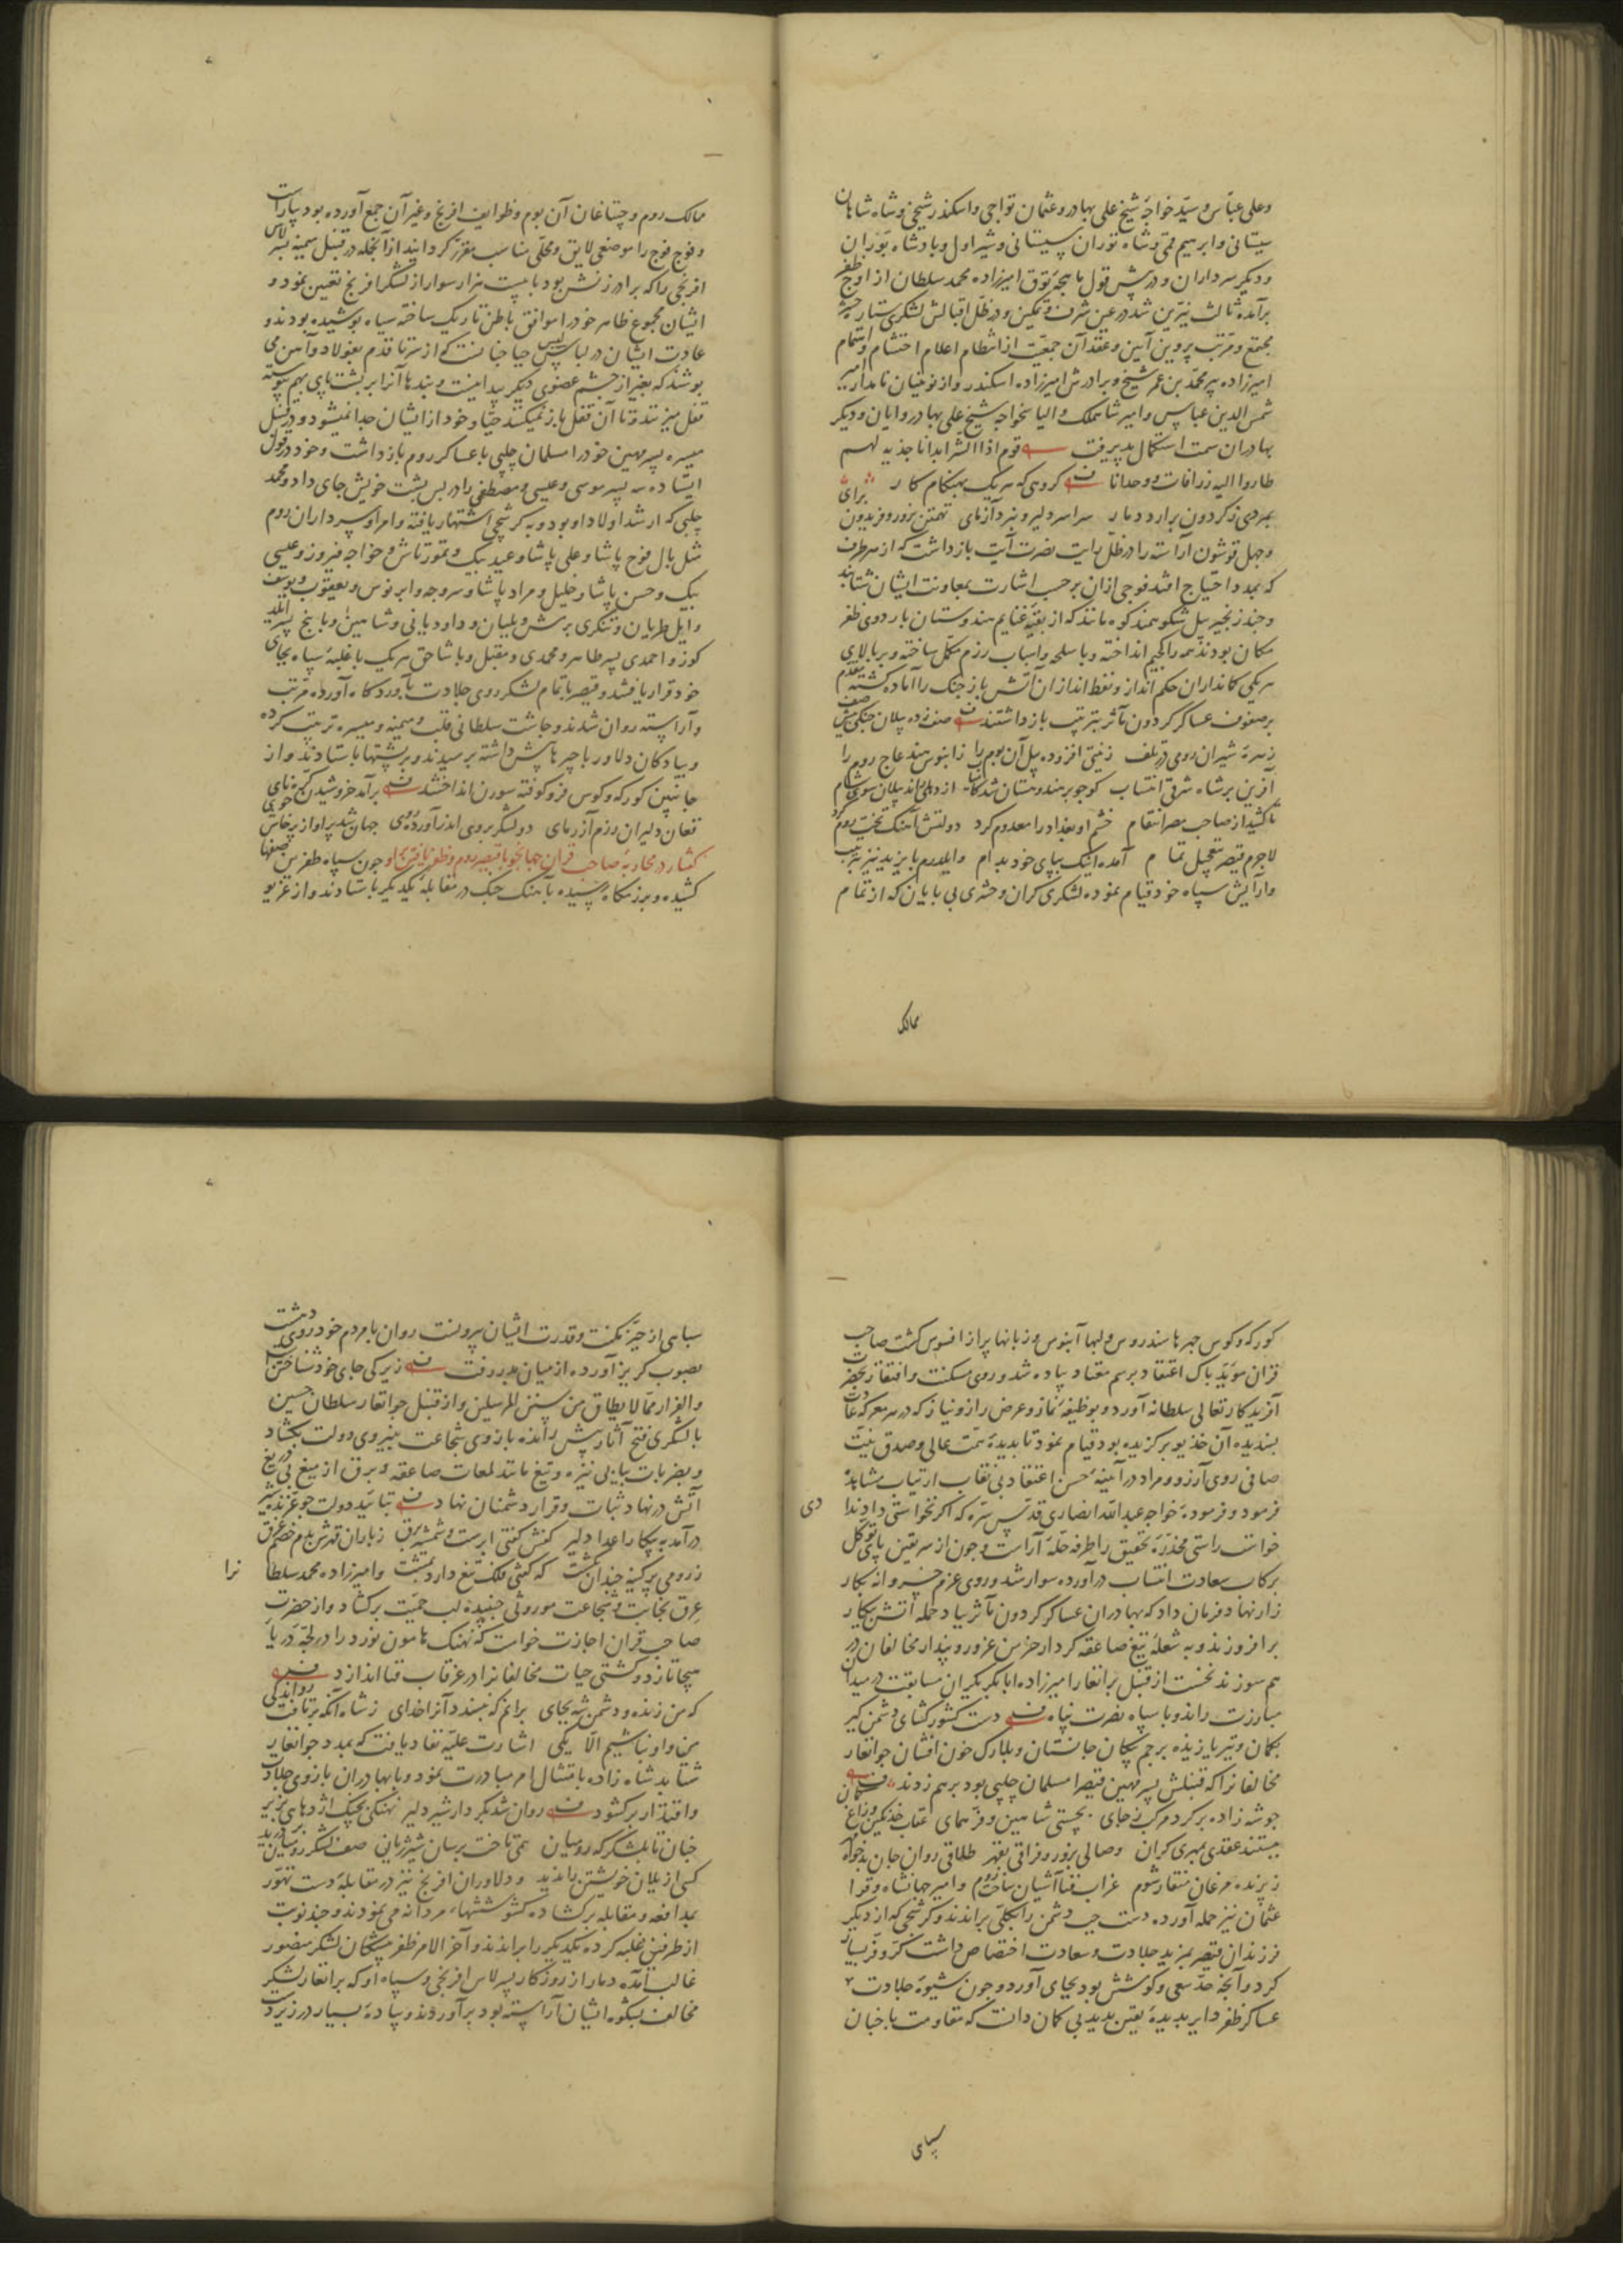 وعلی عباس وسید خواجه شیخ علی بهادر وعثمان تواجی واسکندر شیخی وشاه شاهان
سیستانی وابرهیم قمی وشاه توران سیستانی وشیر اول وپادشاه بوران
ودیکر سرداران ودر پیش قول ماهیچه توق امیرزاده محمد سلطان از اوج ظفر
برآمده ثالث نیرین شد در عین شرف وتمکین ودر ظل اقبالش لشکری ستاره حشر
مجتمع ومرتب پروین آیین وعقد آن جمعیت از انتظام اعلام احتشام واهتمام
امیرزاده پیر محمد بن عمر شیخ وبرادرش امیرزاده اسکندر واز نوئینان نامدار امیر
شمس الدین عباس وامیر شاهملک والیاس خواجه شیخ علی بهادر وایان ودیکر
بهادران سمت استکمال پذیرفت قوم اذا الشر ابدا ناجذیه لهم
طاروا الیه زرافات ووحدانا کروهی که هر یک بهنکام کار
بمردی ز کردون برارد دمار سراسر دلیر ونبرد آزمای تهمتن بزور وفریدون برای
وچهل قوشون آراسته را در ظل رایت نصرت آیت بازداشت که از هر طرف
که بمدد احتیاج افتد فوجی ازان بر حسب اشارت بمعاونت ایشان شتابند
وچند زنجیر پیل شکوهمند کوه مانند که از بقیه غنایم هندوستان باردوی ظفر
مکان بودند همه را کجیم انداخته وباسلحه واسباب رزم مکمل ساخته وبر بالای
هر یکی کمانداران حکم انداز ونفط اندازان آتش باز جنک را آماده کشته مقدم
بر صفوف عساکر کردون مآثر بترتیب بازداشتند صف زده پیلان جنکی پیش صف
زهره شیران روی در تلف زینتی افزوده پیل آن بوم را ز آبنوس هند عاج روم را
آفرین بر شاه شرقی انتساب کو چو بر هندوستان شد کامیاب از دهلی راند پیلان سوی شام
تا کشید از صاحب مصر انتقام خشم او بغداد را معدوم کرد دولتش آهنک تخت روم کرد
لاجرم قیصر بتعجیل تمام آمده اینک بپای خود بدام وایلدرم بایزید نیز بترتیب
وآرایش سپاه خود قیام نموده لشکری کران وحشری بی پایان که از تمام
ممالک
ممالک روم وچتاغان آن بوم وطوایف افرنج وغیر آن جمع آورده بود بیاراست
وفوج فوج را موضعی لایق ومحلی مناسب مقرر کردانید از آنجمله در قنبل میمنه پسر لاس
افرنجی را که برادر زنش بود با بیست هزار سوار از لشکر افرنج تعیین نمود و
ایشان مجموع ظاهر خود را موافق باطن تاریک ساخته سیاه پوشیده بودند و
عادت ایشان در لباس جیبا چنانست که از سر تا قدم بفولاد وآهن می
پوشند که بغیر از چشم عضوی دیکر پیدا نیست وبندها آنرا بر پشت پای بهم پیوسته
قفل میزنند وتا آن قفل باز نمیکنند جیبا وخود از ایشان جدا نمیشود ودر قنبل
میسره پسر مهین خود را مسلمان چلپی با عساکر روم بازداشت وخود در قول
ایستاده سه پسر موسی وعیسی ومصطفی را در پس پشت خویش جای داد ومحمد
چلپی که ارشد اولاد او بود وبه کرشچی اشتهار یافته وامرا وسرداران روم
مثل بال فوج پاشا وعلی پاشا وعید بیک وتمورتاش وخواجه فیروز وعیسی
بیک وحسن پاشا وخلیل ومراد پاشا وسروجه وابرنوس ویعقوب ویوسف
وایل طریان وتنکری برمش وبلبان وداود یانی وشاهین وبا پنج پسر ایلد
کوز واحمدی پسر طاهر ومحمدی ومقبل وپاشاجق هر یک با غلبه سپاه بجای
خود قرار یافتند وقیصر با تمام لشکر روی جلادت بآوردکاه آورده مرتب
وآراسته روان شدند وچاشت سلطانی قلب ومیمنه ومیسره ترتیب کرده
وپیادکان دلاور با چپرها پیش داشته برسیدند وبر پشتها بایستادند واز
جانبین کورکه وکوس فرو کوفته سورن انداختند برآمد خروشیدن کره نای
فغان دلیران رزم آزمای دو لشکر بروی اندر آورد روی جهان شد پر آواز پرخاش جوی
کفتار در محاربه صاحب قران جهانجو با قیصر روم وظفر یافتن بر او چون سپاه ظفر من صفها
کشیده وبرزمکاه رسیده بآهنک جنک در مقابله یکدیکر بایستادند واز غریو
کورکه وکوس چهرها سندروس ولبها آبنوس وزبانها پر از افسوس کشت صاحب
قران موید پاک اعتقاد برسم معتاد پیاده شد وروی مسکنت وافتقار بحضرت
آفریدکار تعالی سلطانه آورد وبوظیفه نماز وعرض راز ونیاز که در هر معرکه عادت
پسندیده آن خدیو برکزیده بود قیام نمود تا بدیده همت عالی وصدق نیت
صافی روی آرزو ومراد در آینه حسن اعتقاد بی نقاب ارتیاب مشاهده
فرمود وفرموده خواجه عبد الله انصاری قدس سره که اکر نخواستی داد ندادی
خواست راستی مخدره تحقیق را طرفه حله آراست وچون از سر یقین پای توکل
برکاب سعادت انتساب درآورده سوار شد وروی عزم خسروانه بکار
زار نهاد وفرمان داد که بهادران عساکر کردون مآثر بباد حمله آتش پیکار
برافروزند وبه شعله تیغ صاعقه کردار خرمن غرور وپندار مخالفان در
هم سوزند نخست از قنبل برانغار امیرزاده ابابکر یکران مسابقت در میدان
مبارزت راند وبا سپاه نصرت پناه دست کشور کشای دشمن کیر
بکمان وتیر یازیده برجم پیکان جانستان وبلارک خون افشان جوانغار
مخالفانرا که قنبلش پسر مهین قیصر مسلمان چلپی بود برهم زدند
چو شه زاده بر کرد مرکب ز جای بچستی شاهین وفر همای عقاب خدنکین وزاغ کمان
ببستند عقدی بمهری کران وصالی بزور وفراقی بقهر طلاقی روان جان بدخواه مهر
ز پرنده مرغان منقار شوم غراب فنا آشیان ساخت روم وامیر جهانشاه وقرا
عثمان نیز حمله آورده دست چپ دشمن را بکلی براندند وکرشچی که از دیکر
فرزندان قیصر بمزید جلادت وسعادت اختصاص داشت کر وفر بسیار
کرد وآنچه حد سعی وکوشش بود بجای آورد وچون شیوه جلادت
عساکر ظفر دایر بدیده یقین بدید بی کمان دانست که مقاومت با چنان
سپاهی
سپاهی از حیز مکنت وقدرت ایشان بیرونست روان با مردم خود روی دهشت
بصوب کریز آورده از میان بدر رفت زیرکی جای خود شناختن است
والفرار مما لا یطاق من سنن المرسلین واز قنبل جوانغار سلطان حسین
با لشکری فتح آثار پیش رانده بازوی شجاعت بنیروی دولت بکشاد
وبضربات پیاپی نیزه وتیغ مانند لمعات صاعقه وبرق از میغ بی دریغ
آتش در نهاد ثبات وقرار دشمنان نهاد بتایید دولت چو غرنده شیر
درآمد به پیکار اعدا دلیر کفش کفتی ابرست وشمشیر برق ز باران قهرش بدم خصم غرق
ز رومی پر کینه چندان بکشت که کیتی فلک تیغ دارد بمشت وامیرزاده محمد سلطانرا
عرق نجابت وشجاعت موروثی جنبیده لب حمیت برکشاد واز حضرت
صاحب قران اجازت خواست که نهنک هامون نورد را در لجه دریا
هیجا تازد وکشتی حیات مخالفانرا در غرقاب فنا اندازد
که من زنده ودشمن شه بجای برانم که نپسندد آنرا خدای ز شاه آنکه برتافت رو اندکی
من واو نباشیم الا یکی اشارت علیه نفاذ یافت که بمدد جوانغار
شتابد شاه زاده بامتثال امر مبادرت نمود وبا بهادران بازوی جلادت
واقتدار برکشود روان شد بکردار شیر دلیر نهنکی بچنک اژدهایی بزیر
چنان تا بلشکرکه رومیان همی تاخت برسان شیر ژیان صف لشکر رومیان بر درید
کسی از یلان خویشتن را ندید ودلاوران افرنج نیز در مقابله دست تهور
بمدافعه ومقابله برکشاده کوششهاء مردانه می نمودند وچند نوبت
از طرفین غلبه کرده یکدیکر را براندند وآخر الامر ظفر پیشکان لشکر منصور
غالب آمده دمار از روزکار پسر لاس افرنجی وسپاه او که برانغار لشکر
مخالف بشکوه ایشان آراسته بود برآوردند وپیاده بسیار در زیر دست